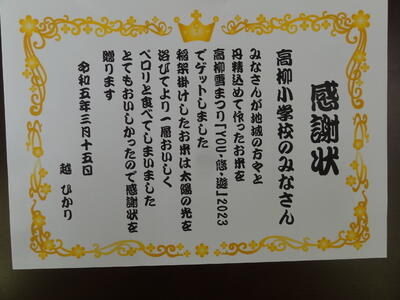 感謝状
高柳小学校のみなさん
みなさんが地域の方々と
丹精込めて作ったお米を
高柳雪まつり「YOU・悠・遊」2023
でゲットしました
稲架掛けしたお米は太陽の光を
浴びてより一層おいしく
ペロリと食べてしまいました
とてもおいしかったので感謝状を
贈ります
令和五年三月十五日
越 ひかり